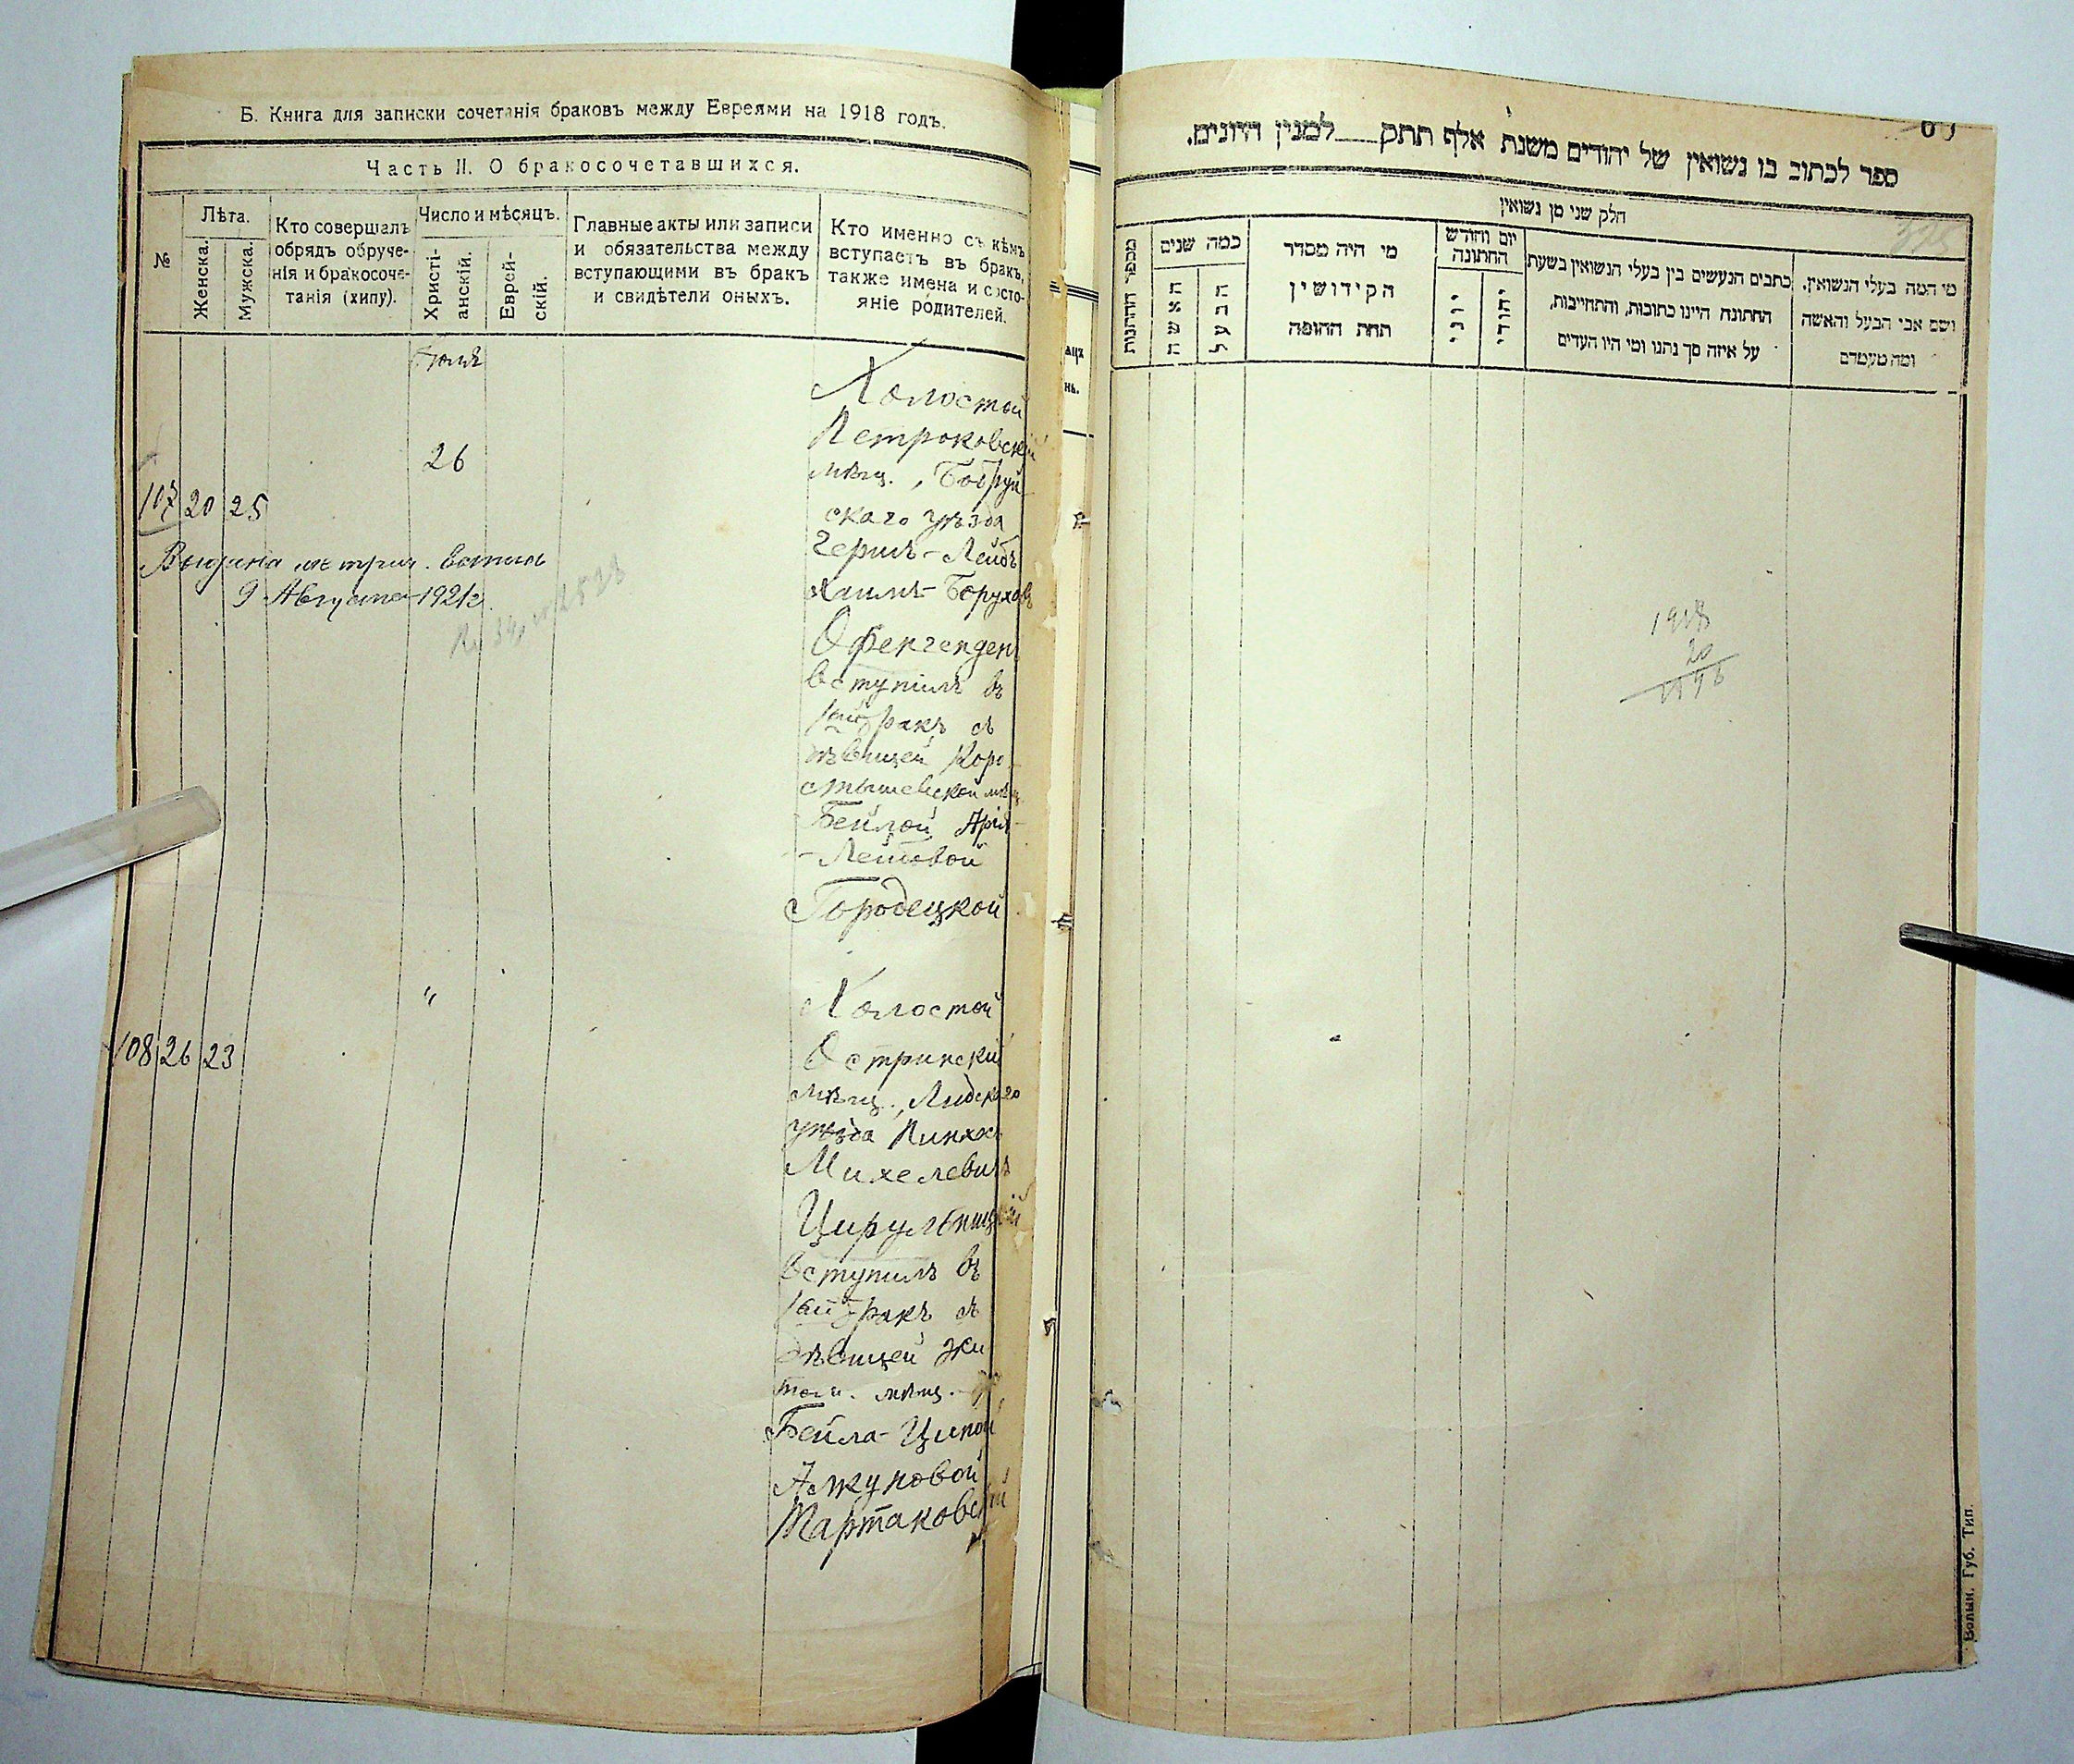 Б. Книга для записки сочетанія браковъ между Евреями на 1918 годъ.
Часть II. О бракосочетавшихся.
№
Лѣта.
Женска.
Мужска.
Кто совершалъ
обрядъ обруче-
нія и бракосоче-
танія (хипу).
Число и мѣсяцъ.
Христі-
анскій.
Еврей-
скій.
Главные акты или записи
и обязательства между
вступающими въ бракъ
и свидѣтели оныхъ.
Кто именно съ кѣмъ
вступаетъ въ бракъ,
также имена и состо-
яніе родителей.
26
107 20 25
Выдана метрич. выпись
9 Августа 1921г.
Холостой
Петроковскій
мѣщ., Бобруй
скаго уѣзда
Герш-Лейбъ
Хаимъ-Борухов
Офенгенден
вступилъ въ
1й бракъ съ
дѣвицей Коро
стышевской мѣщ
Бейлой Арія-
-Лейбовой
Городецкой
"
108 26 23
Холостой
Остринскій
мѣщ., Лидскаго
уѣзда Пинхас
Михелевичъ
Цирульницкій
вступилъ въ
1й бракъ съ
дѣвицей Жи
том. мѣщ.
Бейла-Ципой
Мартаковской
ספר לכתוב בו נשואין של יהודים משנת אלף תתק למנין היונים.
חלק שני מן נשואין
מספר החתונות
כמה שנים
האשה
הבעל
מי היה מסדר
הקידושין
תחת החופה
יום וחודש
החתונה
יוני
יהודי
כתבים הנעשים בין בעלי הנשואין בשעת
החתונה היינו כתובות, והתחייבות,
על איזה סך נתנו ומי היו העדים
מי המה בעלי הנשואין,
ושם אבי הבעל והאשה
ומה מעמדם
1918
20
Волын. Губ. Тип.